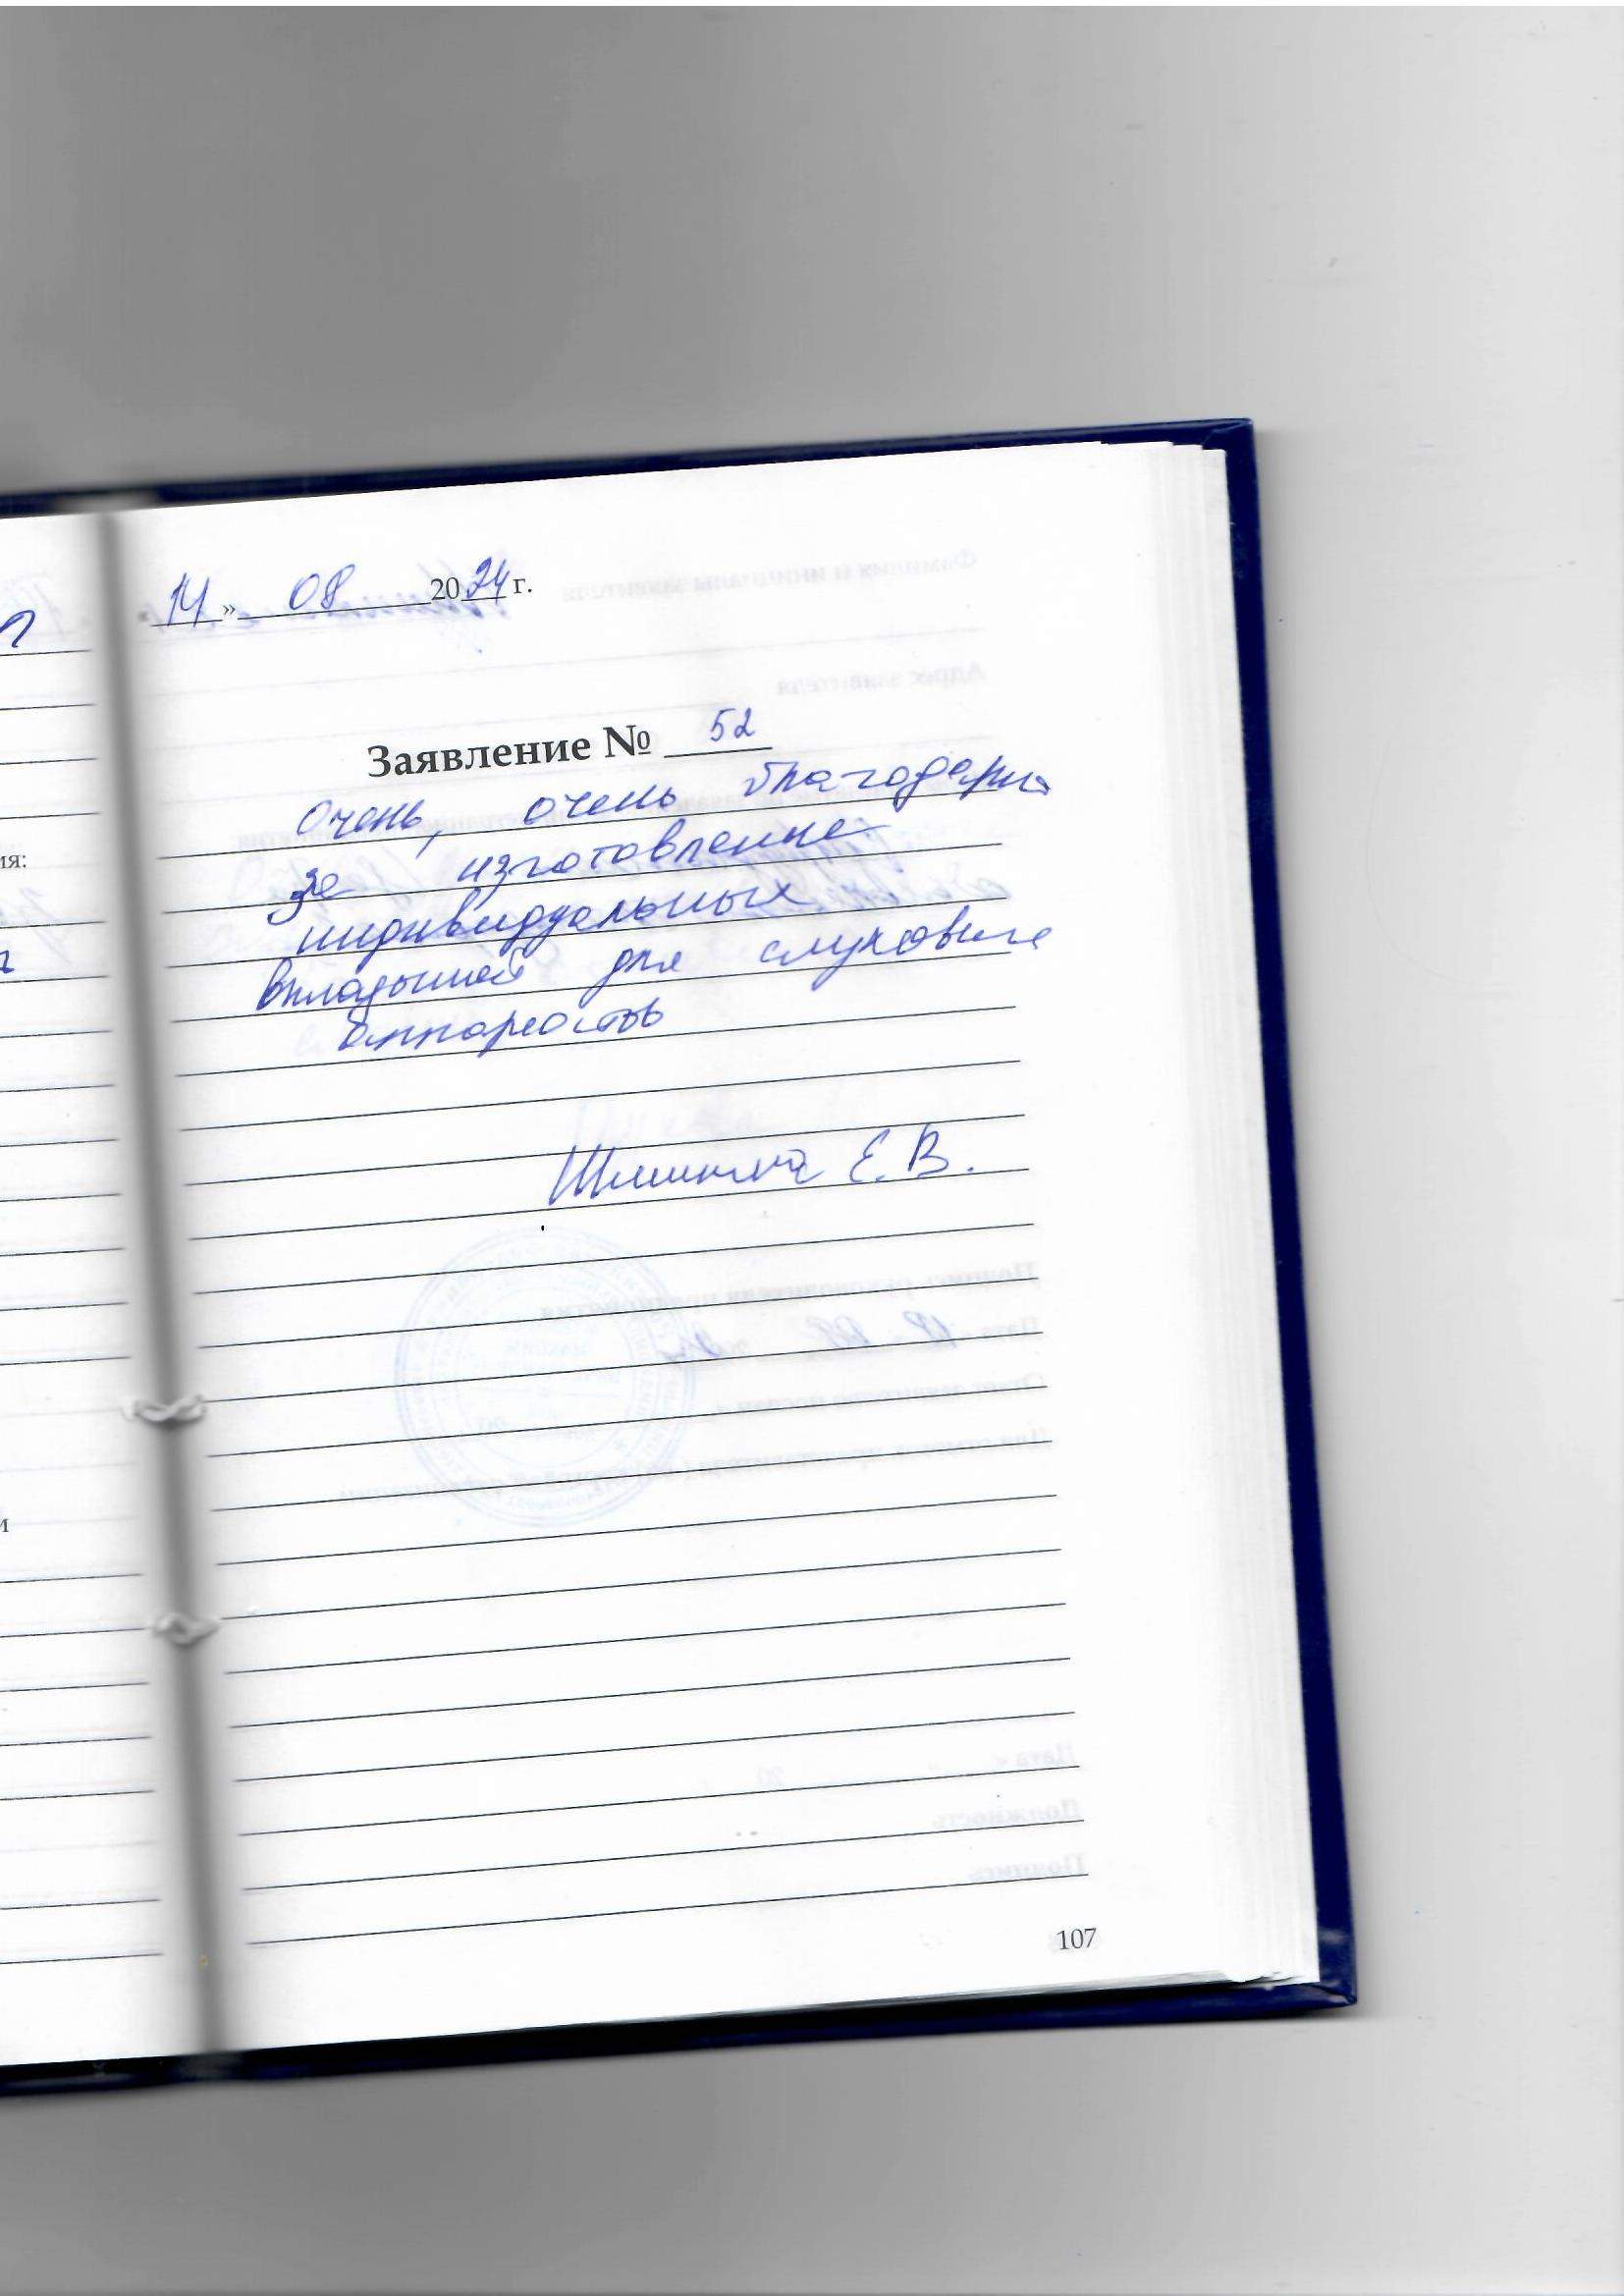 «14» 08 2024 г.
Заявление № 52
Очень, очень благодарна
за изготовление
индивидуальных
вкладышей для слуховых
аппаратов
Е.В.
ия:
и
107